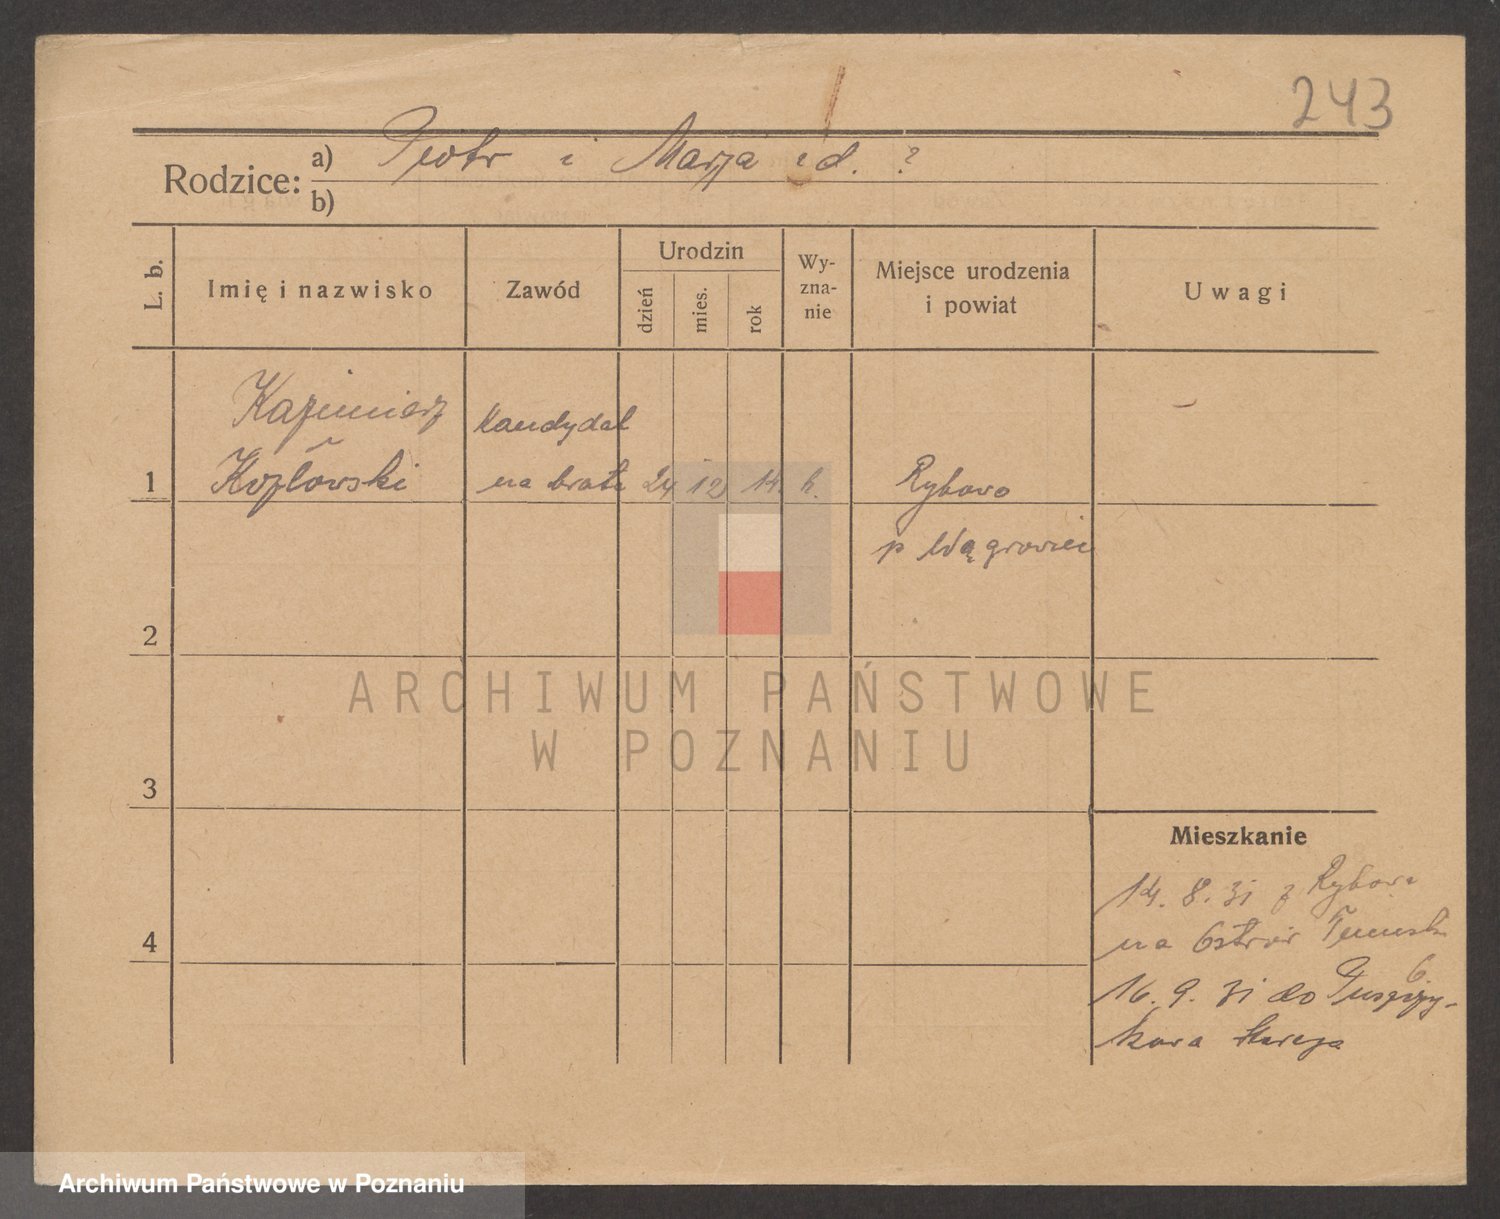 243
Rodzice: a) Piotr i Marja i d. ?
b)
L. b.
Imię i nazwisko
Zawód
Urodzin
dzień
mies.
rok
Wy-
zna-
nie
Miejsce urodzenia
i powiat
Uwagi
Kazimierz
Kozłowski
kandydat
1
na brata
24
12
14
k.
Rybowo
p Wągrowiec
2
3
4
Mieszkanie
14. 8. 31 z Rybowa
na Ostrów Tumski
6.
16. 9. 31 do
kowa Stareja
ARCHIWUM PAŃSTWOWE
W POZNANIU
Archiwum Państwowe w Poznaniu